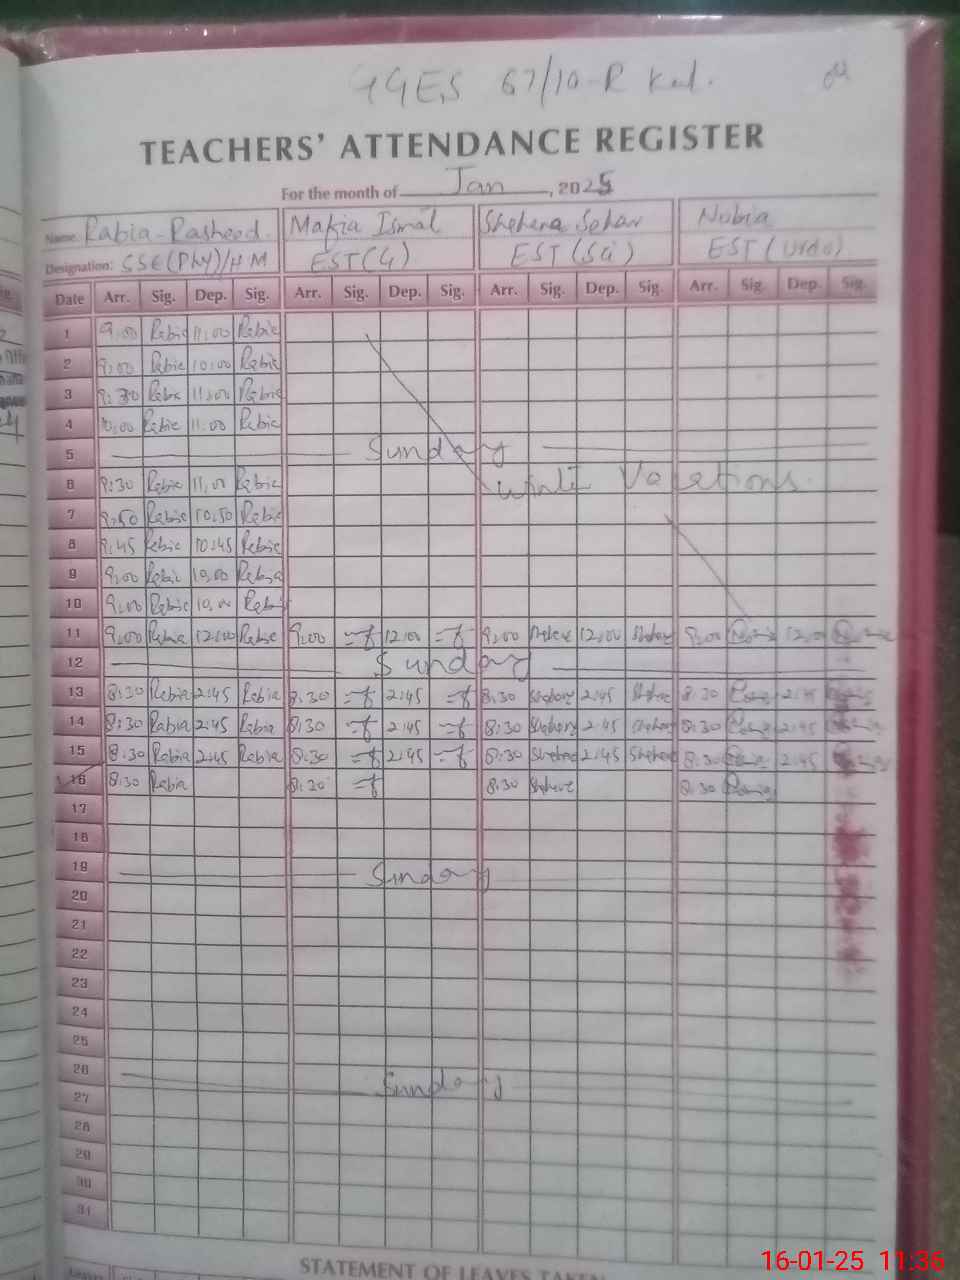 GGES 67/10-R Kwl.
TEACHERS' ATTENDANCE REGISTER
For the month of Jan, 2025
Name: Rabia Rasheed Mafia Ismal Shehena Sehar Nubia
Designation: SSE(Phy)/HM EST(G) EST(Sci) EST(Urdo)
Date Arr. Sig. Dep. Sig. Arr. Sig. Dep. Sig. Arr. Sig. Dep. Sig. Arr. Sig. Dep. Sig.
1 9:00 Rabia 11:00 Rabia
2 9:00 Rabia 10:00 Rabia
3 9:30 Rabia 11:00 Rabia
4 10:00 Rabia 11:00 Rabia
5 Sunday
6 9:30 Rabia 11:00 Rabia Vacations
7 9:50 Rabia 10:50 Rabia
8 9:45 Rabia 10:45 Rabia
9 9:00 Rabia 10:00 Rabia
10 9:00 Rabia 10:00 Rabia
11 9:00 Rabia 12:00 Rabia 9:00 12:00 9:00 12:00 9:00 12:00
12 Sunday
13 8:30 Rabia 2:45 Rabia 8:30 2:45 8:30 2:45 8:30 2:45
14 8:30 Rabia 2:45 Rabia 8:30 2:45 8:30 2:45 8:30 2:45
15 8:30 Rabia 2:45 Rabia 8:30 2:45 8:30 2:45 8:30 2:45
16 8:30 Rabia 8:30 8:30 8:30
17
18
19 Sunday
20
21
22
23
24
25
26 Sunday
27
28
29
30
31
STATEMENT OF LEAVES TAKEN
16-01-25 11:36